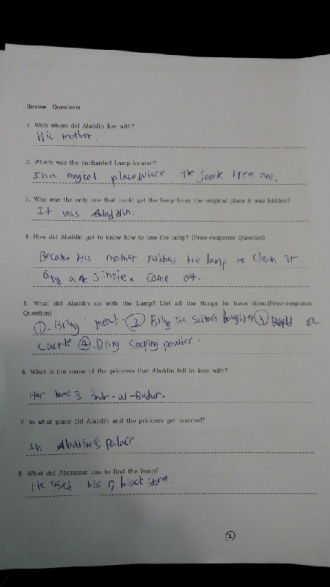 Review Questions
1. With whom did Aladdin live with?
His mother.
2. Where was the enchanted Lamp located?
In a magical place where the jewle tree are.
3. Who was the only one that could get the lamp from the original place it was hidden?
It was Aladdin.
4. How did Aladdin get to know how to use the lamp? (Free-response Question)
Because his mother rubbed the lamp to clean it
and a Jinnie came out.
5. What did Aladdin do with the Lamp? List all the things he have done.(Free-response
Question)
①. Bring meal. ② Bring the sultan's daughter ③ Build a
castle ④. Bring
6. What is the name of the princess that Aladdin fell in love with?
Her name is Badr-ul-Budur.
7. In what place did Aladdin and the princess get married?
In Aladdin's palace.
8. What did Abenazer use to find the lamp?
He used his black stone.
①